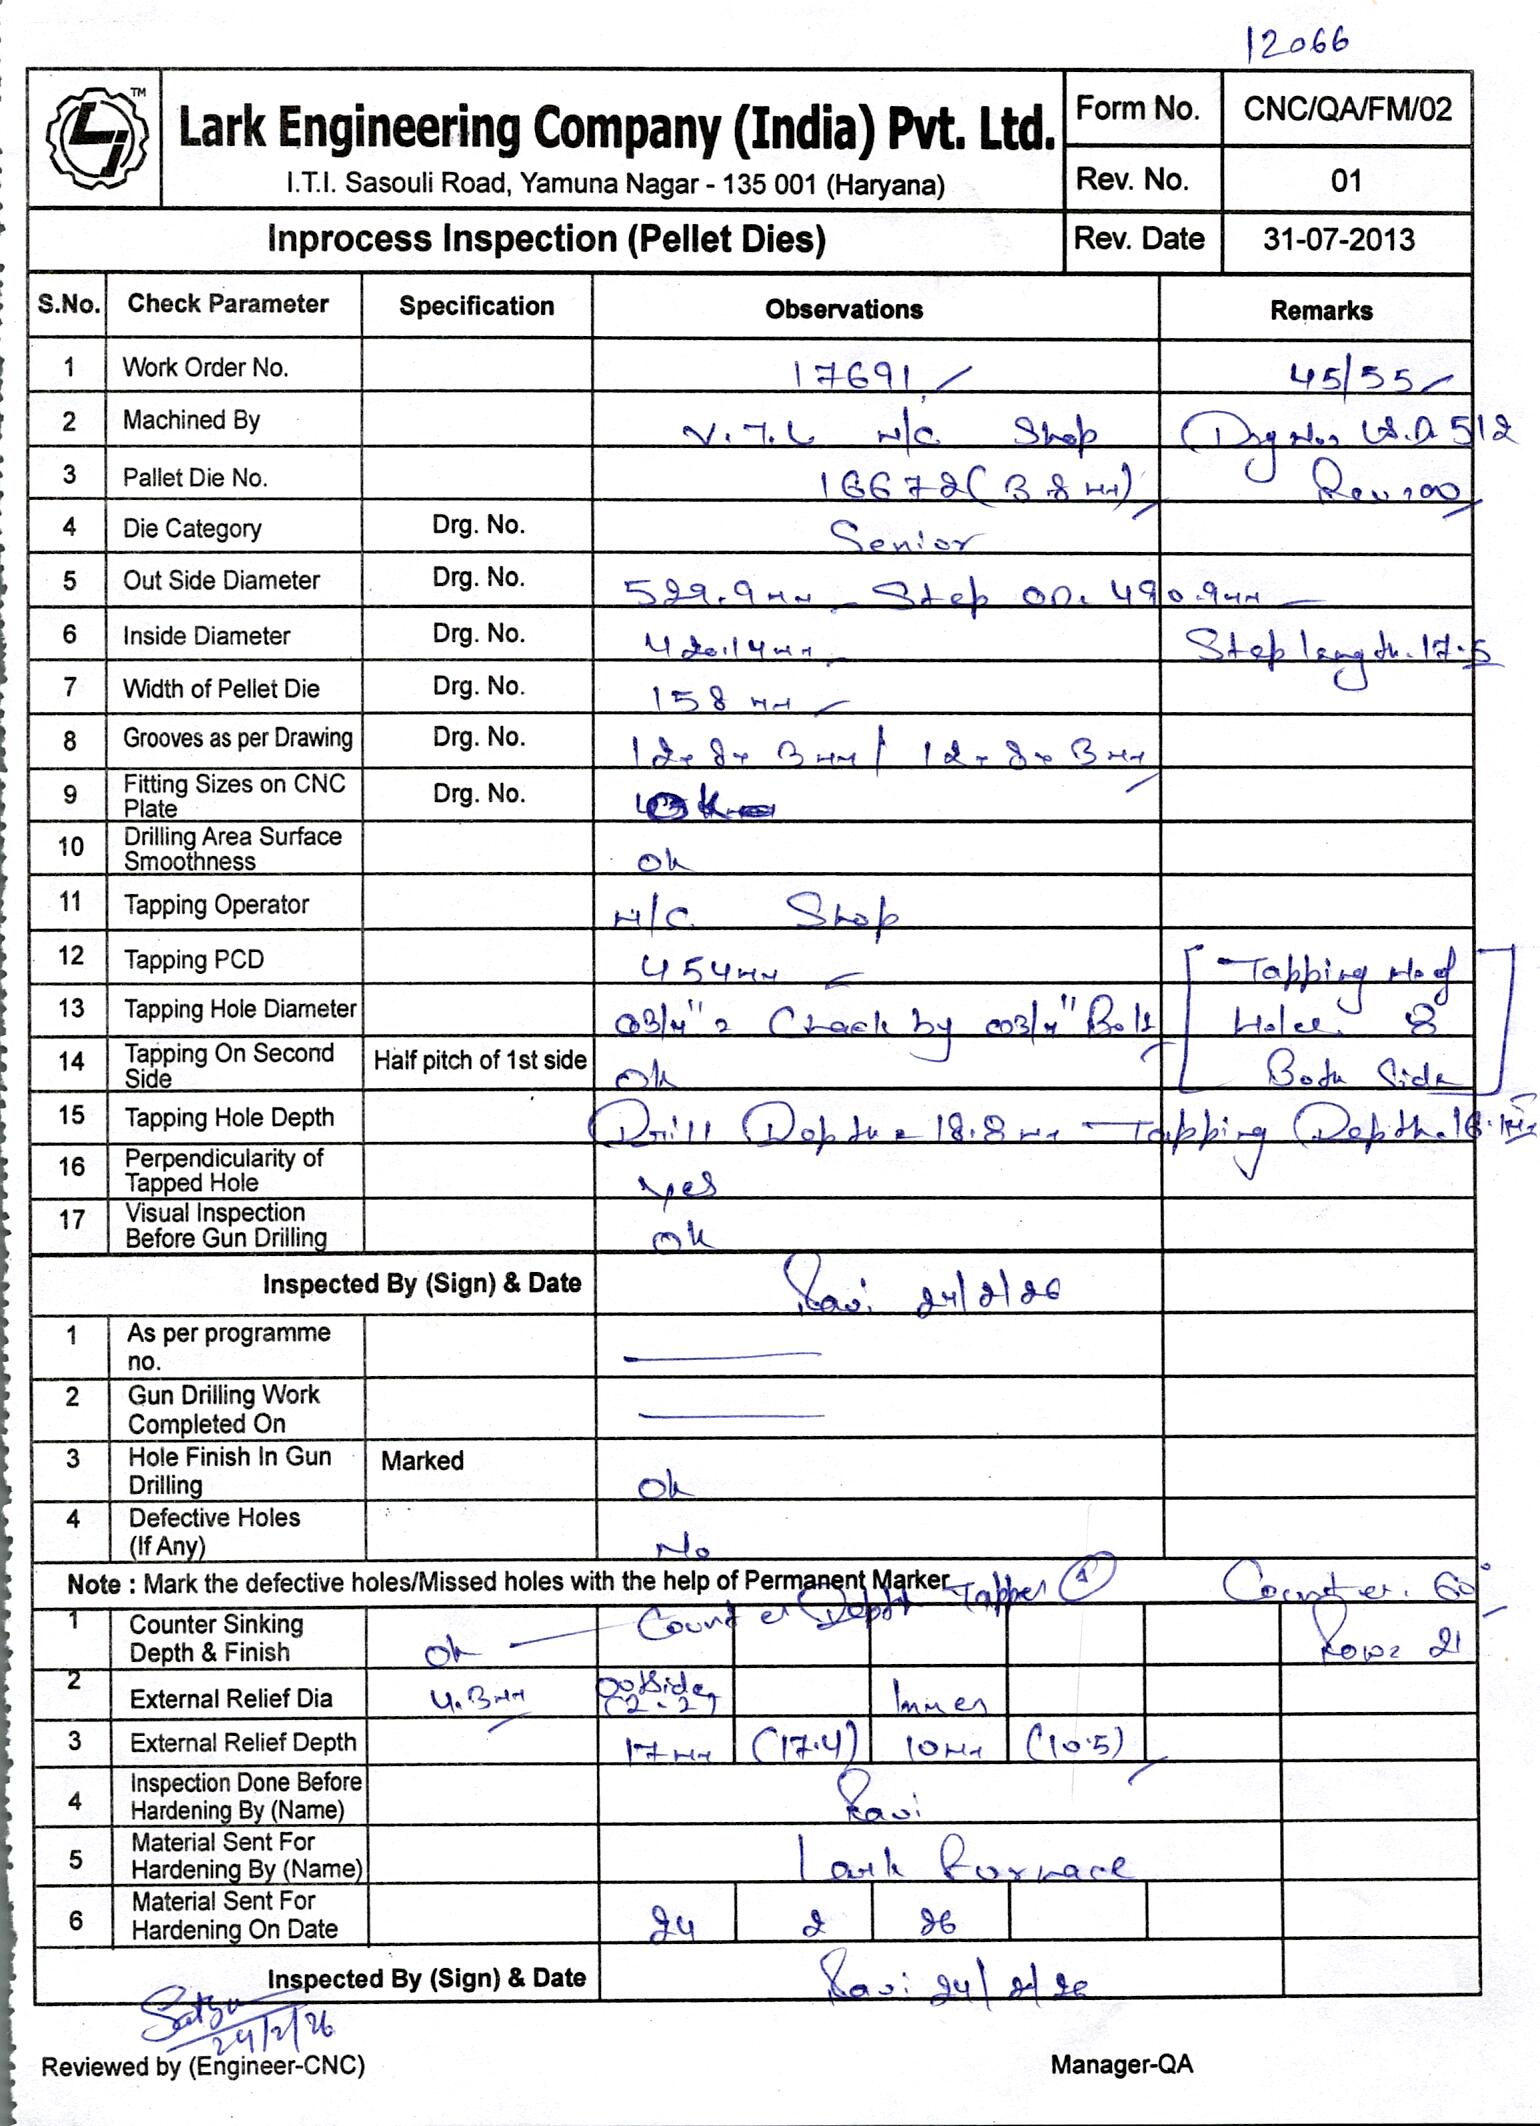 12066
TM
Lark Engineering Company (India) Pvt. Ltd.
I.T.I. Sasouli Road, Yamuna Nagar - 135 001 (Haryana)
Form No. CNC/QA/FM/02
Rev. No. 01
Inprocess Inspection (Pellet Dies) Rev. Date 31-07-2013
S.No. Check Parameter Specification Observations Remarks
1 Work Order No. 17691 45/55
2 Machined By V.T.L M/C Shop Drg No. 512
3 Pallet Die No. 16672 (3.8 mm) Rev
4 Die Category Drg. No. Senior
5 Out Side Diameter Drg. No. 529.9mm Step OD. 490.9mm
6 Inside Diameter Drg. No. 420.14mm Step length. 17.5
7 Width of Pellet Die Drg. No. 158 mm
8 Grooves as per Drawing Drg. No. 12x8x3mm / 12x8x3mm
9 Fitting Sizes on CNC Plate Drg. No. ok
10 Drilling Area Surface Smoothness ok
11 Tapping Operator M/C Shop
12 Tapping PCD 454mm Tapping No of
13 Tapping Hole Diameter 3/4" Check by 3/4" Bolt Holes 8
14 Tapping On Second Side Half pitch of 1st side ok Both Side
15 Tapping Hole Depth Drill Depth = 18.8mm Tapping Depth.
16 Perpendicularity of Tapped Hole yes
17 Visual Inspection Before Gun Drilling ok
Inspected By (Sign) & Date Ravi 24/2/26
1 As per programme no.
2 Gun Drilling Work Completed On
3 Hole Finish In Gun Drilling Marked ok
4 Defective Holes (If Any) No
Note : Mark the defective holes/Missed holes with the help of Permanent Marker Counter. 60°
Counter Depth Tapper
1 Counter Sinking Depth & Finish ok Row= 21
2 External Relief Dia 4.3mm OutSide (2-2) Inner
3 External Relief Depth 17mm (17.4) 10mm (10.5)
4 Inspection Done Before Hardening By (Name) Ravi
5 Material Sent For Hardening By (Name) Lark Furnace
6 Material Sent For Hardening On Date 24 2 26
Inspected By (Sign) & Date Ravi 24/2/26
24/2/26
Reviewed by (Engineer-CNC) Manager-QA